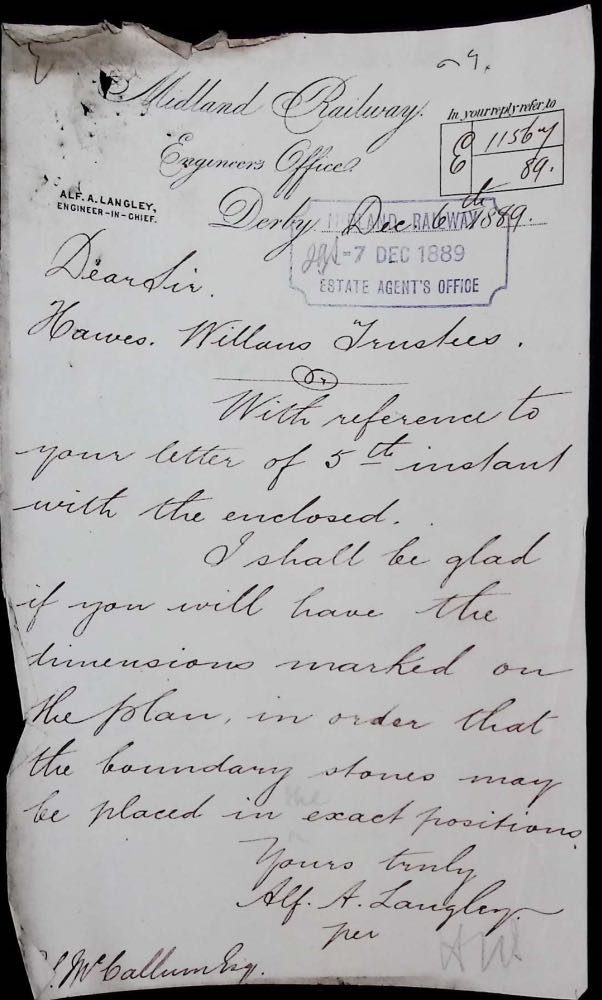 Midland Railway.
In your reply refer to
E 11567
89.
Engineers Office
ALF. A. LANGLEY,
ENGINEER-IN-CHIEF.
Derby, Dec. 6th 1889.
MIDLAND RAILWAY
-7 DEC 1889
ESTATE AGENT'S OFFICE
Dear Sir.
Hawes. Willans Trustees.
With reference to
your letter of 5th instant
with the enclosed.
I shall be glad
if you will have the
dimensions marked on
the plan, in order that
the boundary stones may
be placed in the exact positions.
Yours truly
Alf. A. Langley.
per
McCallum Esq.